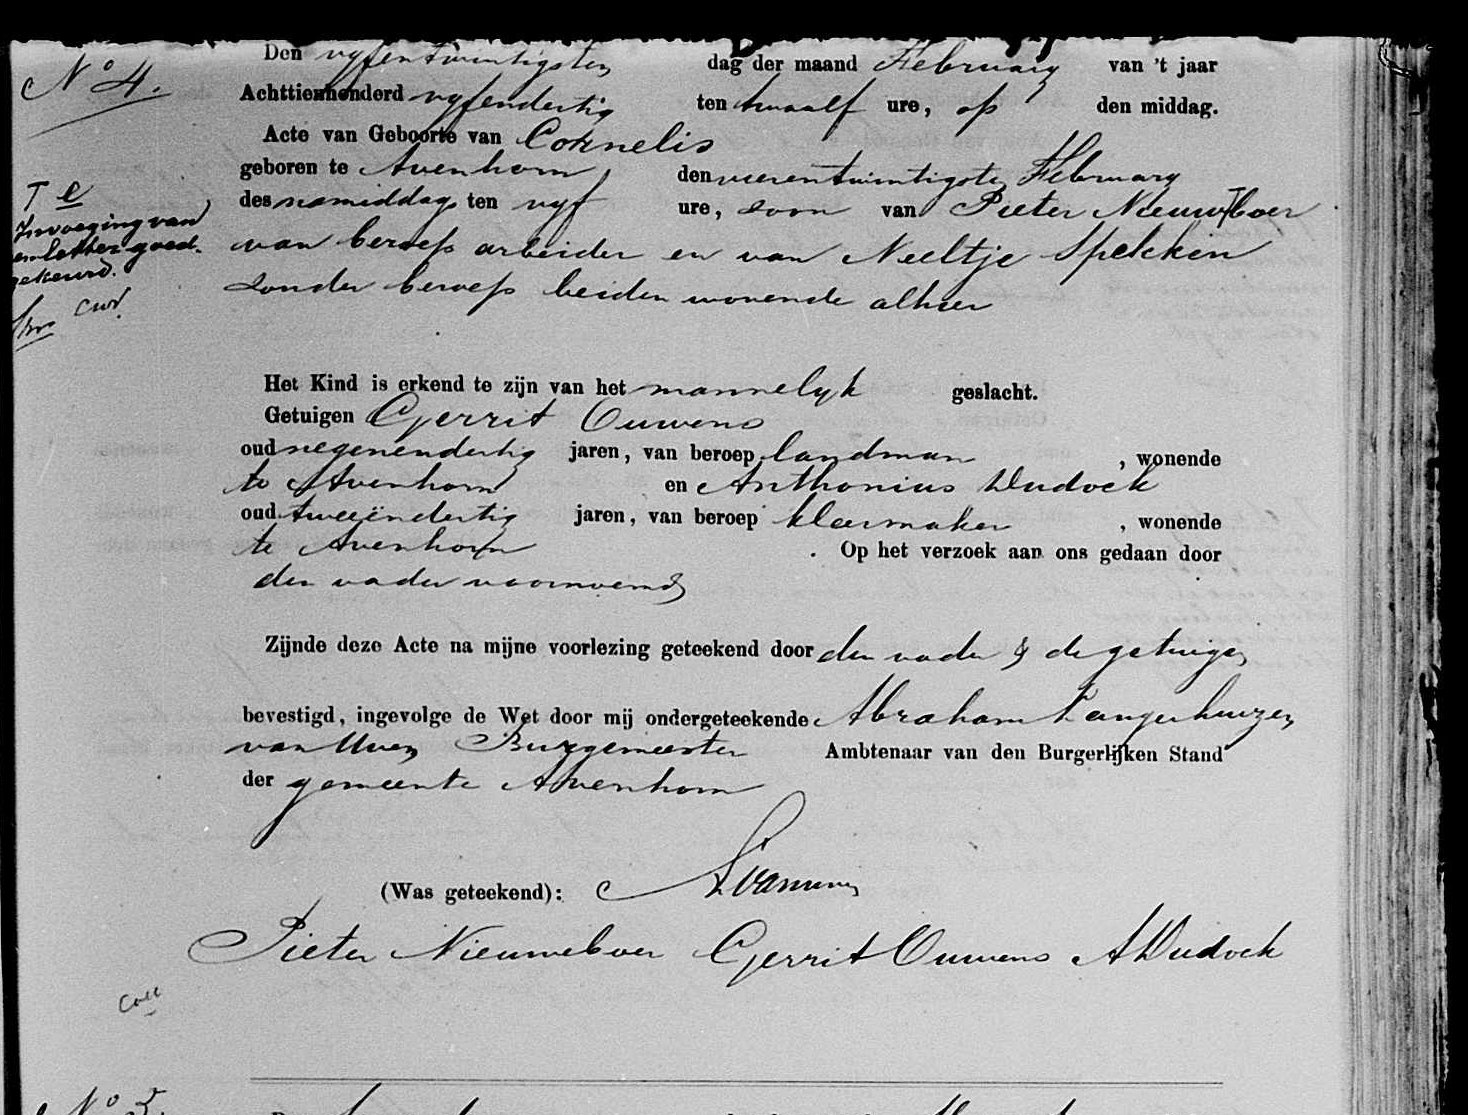 No 4.
Den vyfentwintigsten dag der maand February van 't jaar
Achttienhonderd vyfendertig ten twaalf ure, op den middag.
Acte van Geboorte van Cornelis
geboren te Avenhorn den vierentwintigsten February
des namiddags ten vyf ure, zoon van Pieter Nieuw⊤boer
van beroep arbeider en van Neeltje Spekken
zonder beroep beiden wonende alhier
⊤ e
Invoeging van
een letter goed-
gekeurd.
Het Kind is erkend te zijn van het mannelyk geslacht.
Getuigen Gerrit Ouwens
oud negenendertig jaren, van beroep landman, wonende
te Avenhorn en Anthonius Dudock
oud tweeëndertig jaren, van beroep kleermaker, wonende
te Avenhorn. Op het verzoek aan ons gedaan door
den vader voornoemd
Zijnde deze Acte na mijne voorlezing geteekend door den vader & de getuigen
bevestigd, ingevolge de Wet door mij ondergeteekende Abraham Langerhuizen
van Uven Burgemeester Ambtenaar van den Burgerlijken Stand
der gemeente Avenhorn
(Was geteekend):
Pieter Nieuweboer Gerrit Ouwens A Dudock
Coll
No 5.